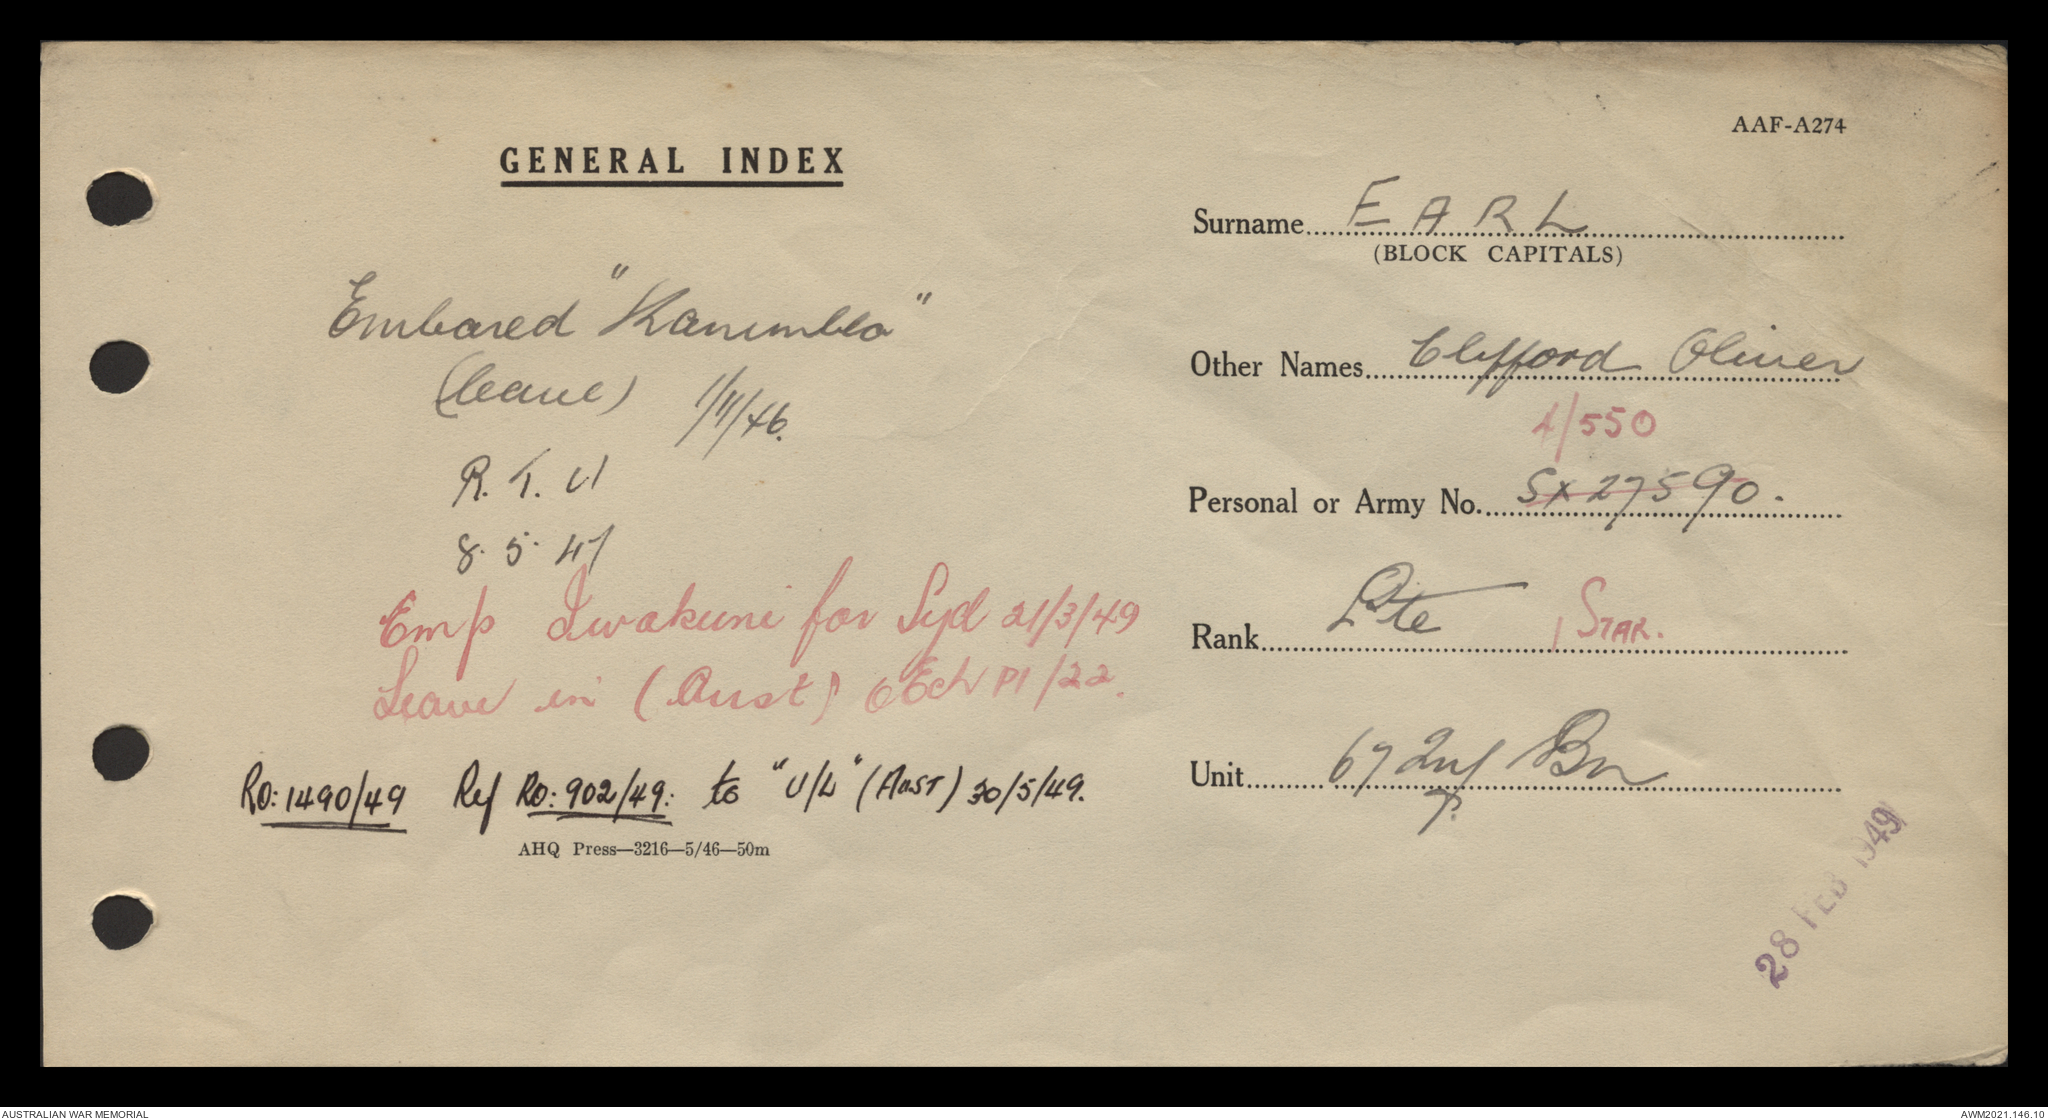 GENERAL INDEX
Embared "Kanimbla"
(leave) 1/11/46.
R. T. U
8. 5. 47
Emp Iwakuni for Syd 21/3/49
Leave in (Aust) Ech P1/22.
RO: 1490/49 Ref RO: 902/49: to "U/L" (AUST) 30/5/49.
AHQ Press—3216—5/46—50m
AAF-A274
Surname EARL
(BLOCK CAPITALS)
Other Names Clifford Oliver
4/550
Personal or Army No. SX27590.
Rank Pte 1 STAR.
Unit 67 Inf Bn
28 FEB 1949
AUSTRALIAN WAR MEMORIAL
AWM2021.146.10